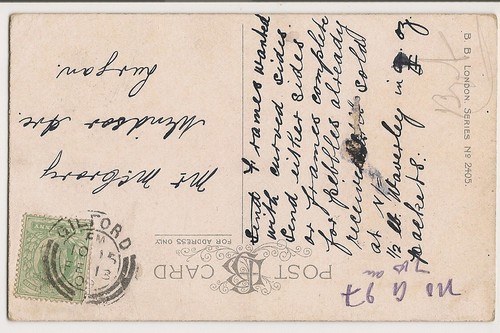 POST CARD
FOR ADDRESS ONLY
B. B. LONDON. SERIES No 2405.
GILFORD
PM
OC 15
13
Mr McCrory
Windsor Ave.
Lurgan.
Send Frames wanted
with curved sides.
Send either sides
or frames complete
for pebbles already
received
sold
at
1/2 lb. Waverley in oz.
packets.
No G 97